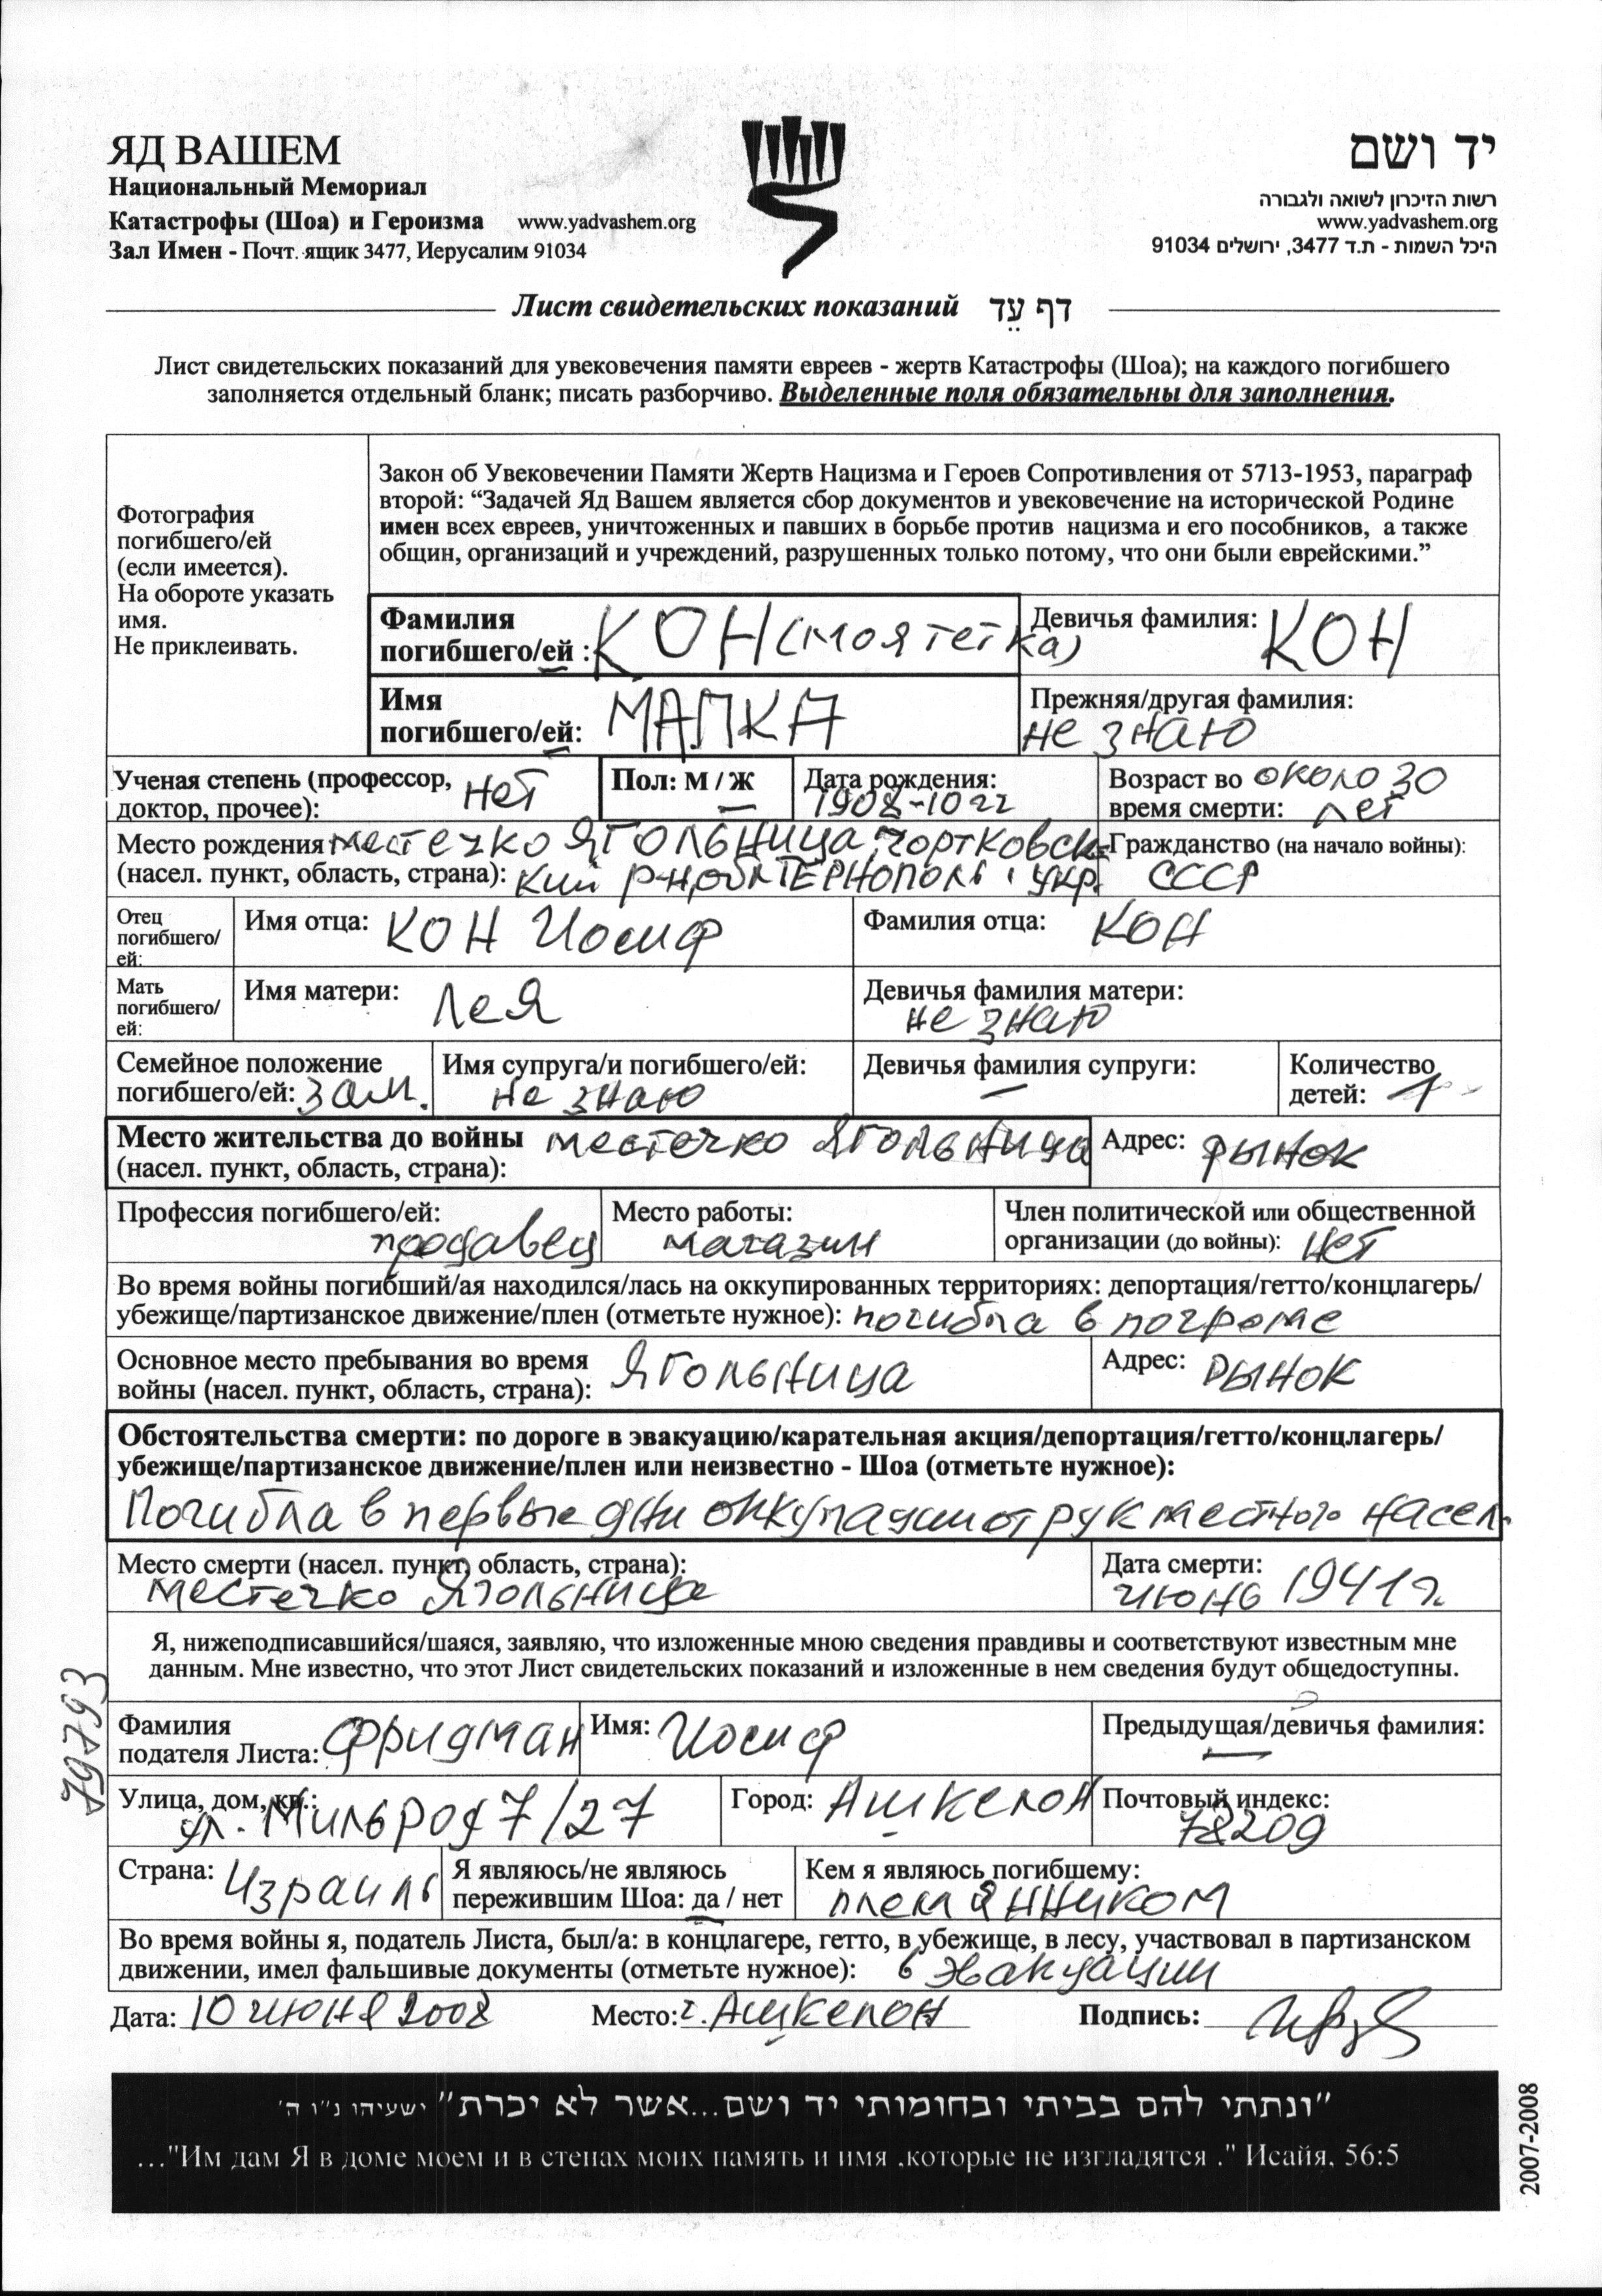 ЯД ВАШЕМ
Национальный Мемориал
Катастрофы (Шоа) и Героизма www.yadvashem.org
Зал Имен - Почт. ящик 3477, Иерусалим 91034
יד ושם
רשות הזיכרון לשואה ולגבורה
www.yadvashem.org
היכל השמות - ת.ד 3477, ירושלים 91034
Лист свидетельских показаний דף עֵד
Лист свидетельских показаний для увековечения памяти евреев - жертв Катастрофы (Шоа); на каждого погибшего
заполняется отдельный бланк; писать разборчиво. Выделенные поля обязательны для заполнения.
Фотография
погибшего/ей
(если имеется).
На обороте указать
имя.
Не приклеивать.
Закон об Увековечении Памяти Жертв Нацизма и Героев Сопротивления от 5713-1953, параграф
второй: “Задачей Яд Вашем является сбор документов и увековечение на исторической Родине
имен всех евреев, уничтоженных и павших в борьбе против нацизма и его пособников, а также
общин, организаций и учреждений, разрушенных только потому, что они были еврейскими.”
Фамилия
погибшего/ей : КОН (моя тетка)
Девичья фамилия: КОН
Имя
погибшего/ей: МАЛКА
Прежняя/другая фамилия:
не знаю
Ученая степень (профессор,
доктор, прочее): нет
Пол: М / Ж
Дата рождения:
1908-10 гг
Возраст во около 30
время смерти: лет
Место рождения местечко ЯГОЛЬНИЦА Чортковск-
(насел. пункт, область, страна): кий р-н, обл ТЕРНОПОЛЬ, укр.
Гражданство (на начало войны):
СССР
Отец
погибшего/
ей:
Имя отца: КОН Иосиф
Фамилия отца: КОН
Мать
погибшего/
ей:
Имя матери: Лея
Девичья фамилия матери:
не знаю
Семейное положение
погибшего/ей: зам.
Имя супруга/и погибшего/ей:
не знаю
Девичья фамилия супруги:
—
Количество
детей: 1
Место жительства до войны местечко Ягольница
(насел. пункт, область, страна):
Адрес: рынок
Профессия погибшего/ей:
продавец
Место работы:
магазин
Член политической или общественной
организации (до войны): нет
Во время войны погибший/ая находился/лась на оккупированных территориях: депортация/гетто/концлагерь/
убежище/партизанское движение/плен (отметьте нужное): погибла в погроме
Основное место пребывания во время
войны (насел. пункт, область, страна): Ягольница
Адрес: рынок
Обстоятельства смерти: по дороге в эвакуацию/карательная акция/депортация/гетто/концлагерь/
убежище/партизанское движение/плен или неизвестно - Шоа (отметьте нужное):
Погибла в первые дни оккупации от рук местного насел.
Место смерти (насел. пункт, область, страна):
местечко Ягольница
Дата смерти:
июнь 1941 г.
Я, нижеподписавшийся/шаяся, заявляю, что изложенные мною сведения правдивы и соответствуют известным мне
данным. Мне известно, что этот Лист свидетельских показаний и изложенные в нем сведения будут общедоступны.
79793
Фамилия
подателя Листа: Фридман
Имя: Иосиф
Предыдущая/девичья фамилия:
—
Улица, дом, кв.:
ул. Мильрод 7/27
Город: Ашкелон
Почтовый индекс:
78209
Страна: Израиль
Я являюсь/не являюсь
пережившим Шоа: да / нет
Кем я являюсь погибшему:
племянником
Во время войны я, податель Листа, был/а: в концлагере, гетто, в убежище, в лесу, участвовал в партизанском
движении, имел фальшивые документы (отметьте нужное): в эвакуации
Дата: 10 июня 2008 Место: г. Ашкелон Подпись:
"ונתתי להם בביתי ובחומותי יד ושם...אשר לא יכרת" ישעיהו נ"ו ה'
..."Им дам Я в доме моем и в стенах моих память и имя ,которые не изгладятся ." Исайя, 56:5
2007-2008